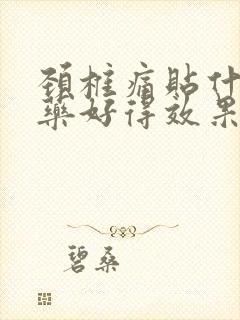 頚椎痛貼什
藥好得效果
碧桑